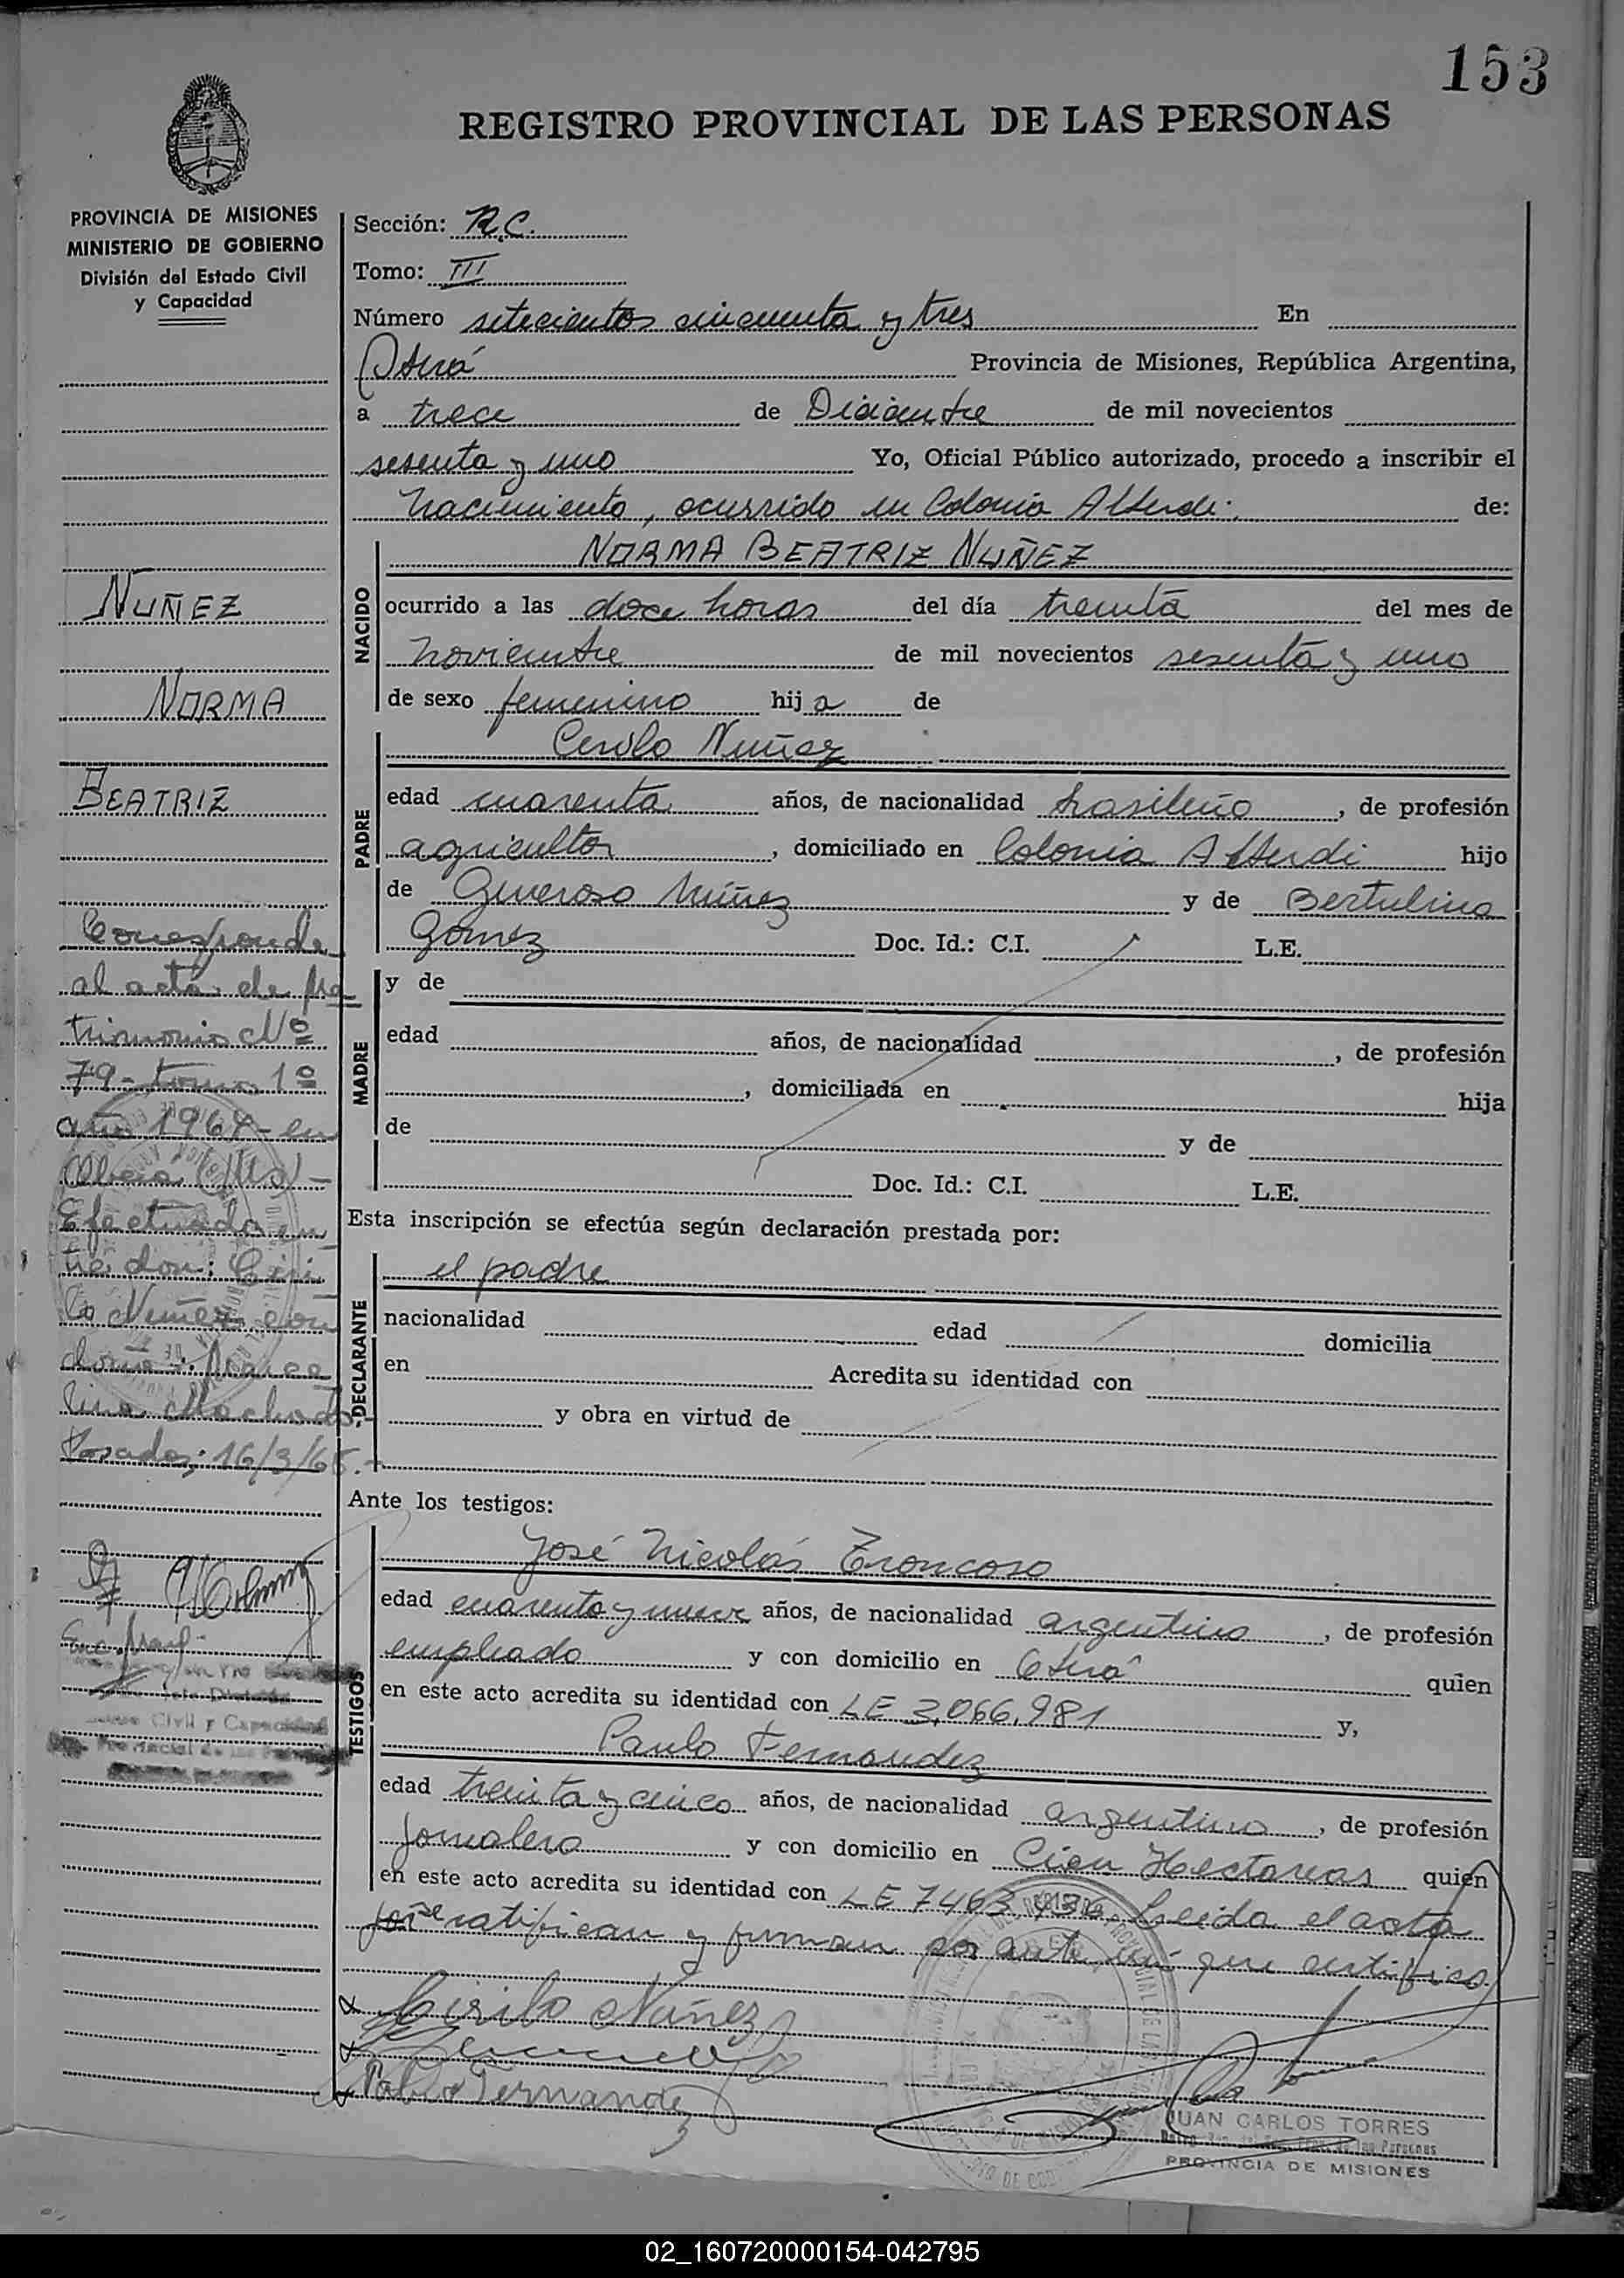 153
REGISTRO PROVINCIAL DE LAS PERSONAS
PROVINCIA DE MISIONES
MINISTERIO DE GOBIERNO
División del Estado Civil
y Capacidad
NUÑEZ
NORMA
BEATRIZ
Corresponde
al acta de ma
trimonio Nº
79 - tomo 1º
año 1964 - en
Oberá (Ms) -
Efectuado en
tre don: Ciri
lo Nuñez con
doña: Marce
lina Machado.-
Posadas; 16/3/65.-
Civil y Capacidad
Sección: R.C.
Tomo: III
Número setecientos cincuenta y tres En
Oberá Provincia de Misiones, República Argentina,
a trece de Diciembre de mil novecientos
sesenta y uno Yo, Oficial Público autorizado, procedo a inscribir el
nacimiento, ocurrido en Colonia Alberdi. de:
NACIDO
NORMA BEATRIZ NUÑEZ
ocurrido a las doce horas del día treinta del mes de
noviembre de mil novecientos sesenta y uno
de sexo femenino hija de
PADRE
Cirilo Nuñez
edad cuarenta años, de nacionalidad brasileño, de profesión
agricultor, domiciliado en Colonia Alberdi hijo
de Generoso Núñez y de Bertulina
Gómez Doc. Id.: C.I. L.E.
MADRE
y de
edad años, de nacionalidad , de profesión
, domiciliada en hija
de y de
Doc. Id.: C.I. L.E.
Esta inscripción se efectúa según declaración prestada por:
DECLARANTE
el padre
nacionalidad edad domicilia
en Acredita su identidad con
y obra en virtud de
Ante los testigos:
TESTIGOS
José Nicolás Troncoso
edad cuarenta y nueve años, de nacionalidad argentino, de profesión
empleado y con domicilio en Oberá quien
en este acto acredita su identidad con LE 3,066,981 y,
Paulo Fernandez
edad treinta y cinco años, de nacionalidad argentino, de profesión
jornalero y con domicilio en Cien Hectareas quien
en este acto acredita su identidad con LE 7463 Leida el acta
ratifican y firman por ante mí que certifico
Cirilo Nuñez
Pablo Fernandez
JUAN CARLOS TORRES
PROVINCIA DE MISIONES
02_160720000154-042795